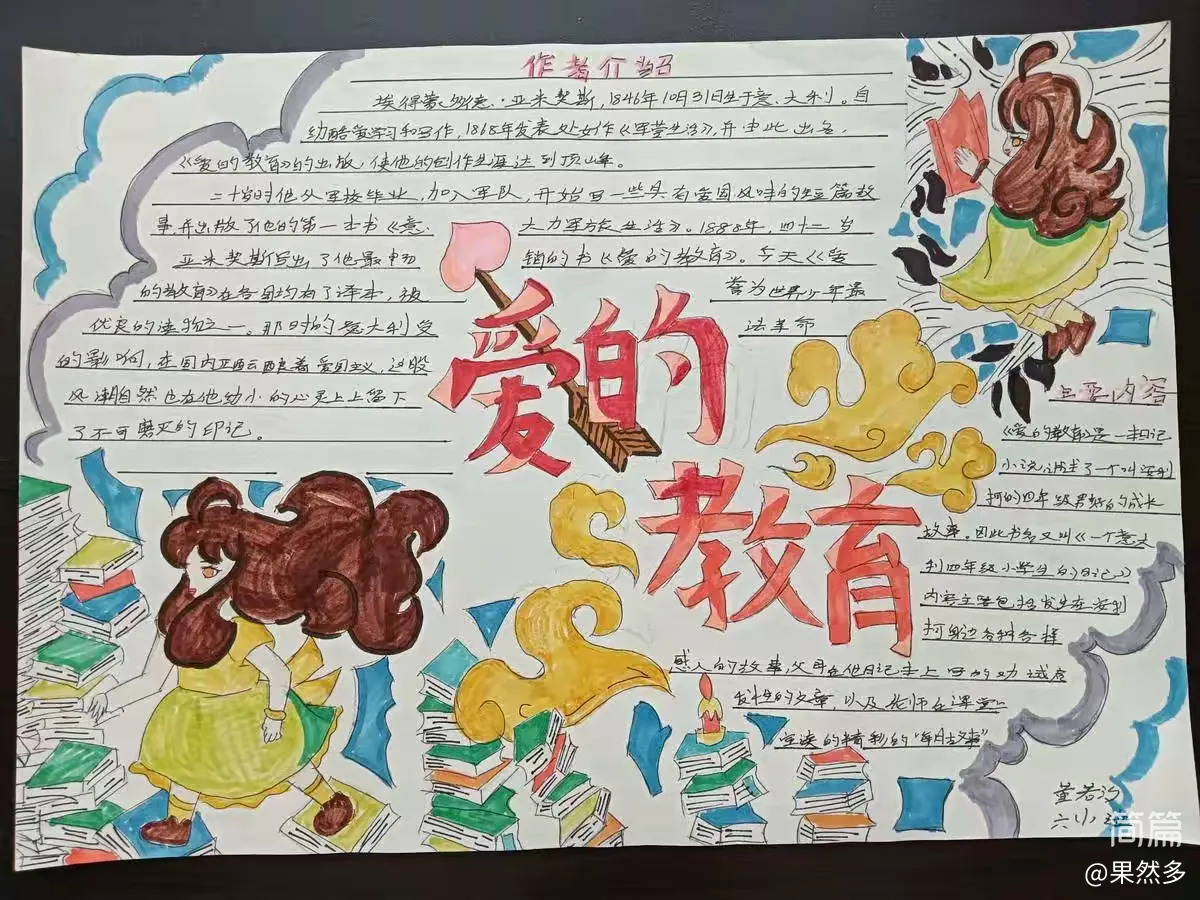 作者介绍
埃得蒙多·德·亚米契斯，1846年10月31日生于意大利。自
幼酷爱学习和写作，1868年发表处女作《军营生活》，并由此出名，
《爱的教育》的出版，使他的创作生涯达到顶峰。
二十岁时他从军校毕业，加入军队，开始写一些具有爱国风味的短篇故
事并出版了他的第一本书《意 大力军旅生活》。1888年，四十二岁
亚米契斯写出了他最畅 销的书《爱的教育》。今天《爱
的教育》在各国均有了译本，被 誉为世界少年最
优良的读物之一。那时的意大利受 法革命
的影响，在国内 着爱国主义，这股
风潮自然也在他幼小的心灵上上留下
了不可磨灭的印记。
爱的
教育
主要内容
《爱的教育》是一本日记
小说，讲述了一个叫安利
柯的四年级男孩的成长
故事，因此书名又叫《一个意大
利四年级小学生的日记》
内容主要包括发生在安利
柯身边各种各样
感人的故事，父母在他日记本上写的劝诫启
发性的文章，以及老师在课堂上
宣读的精彩的“每月故事”
董若汐
简篇
@果然多